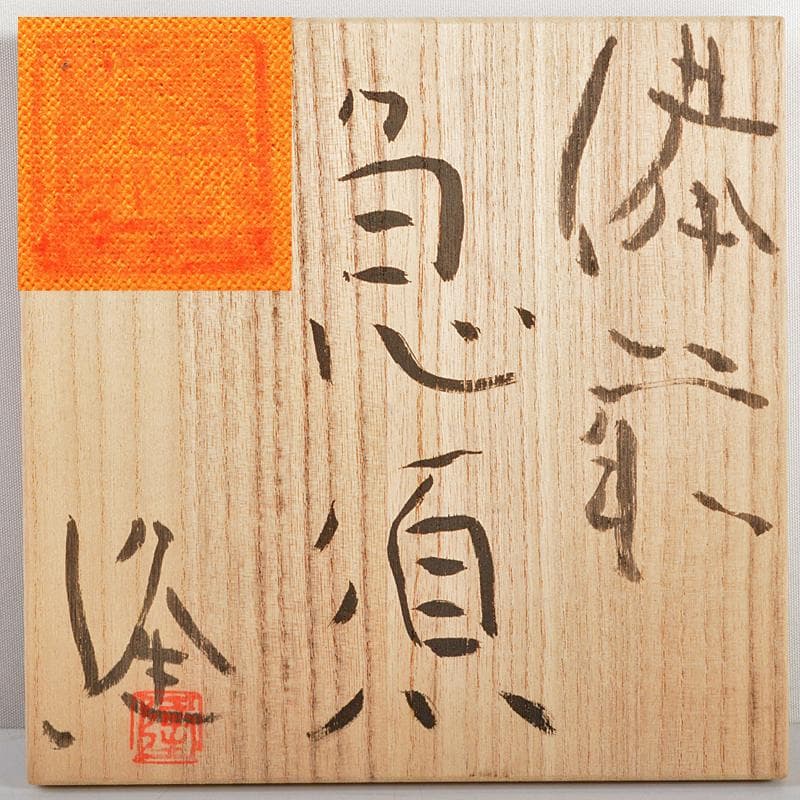 備前
急須
隆